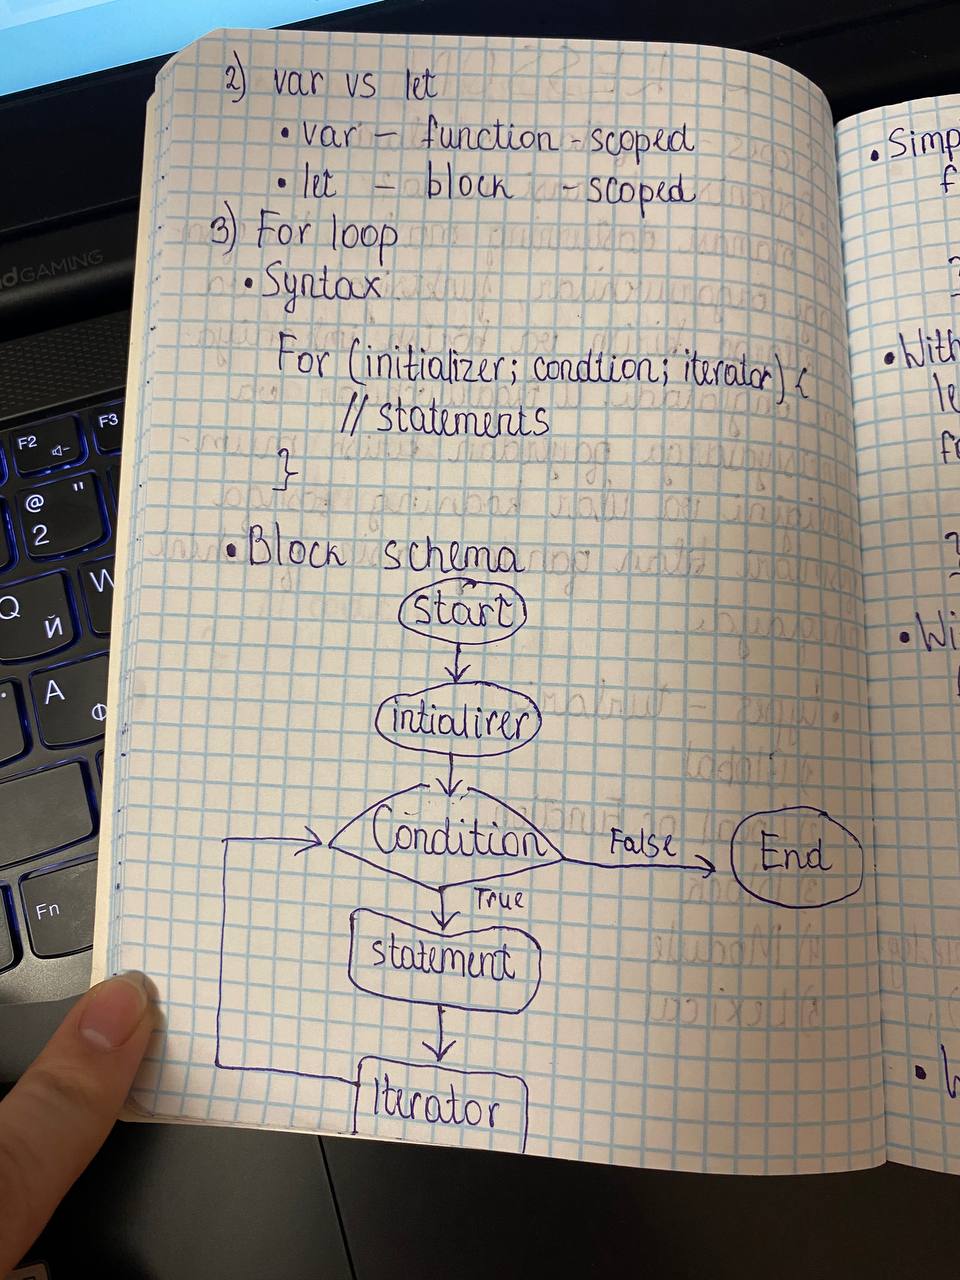 2) var vs let
• var – function - scoped
• let – block - scoped
3) For loop
• Syntax
For (initializer; condtion; iterator) {
// statements
}
• Block schema
start
intializer
Condition
False
End
True
statement
Iterator
• Simp
f
• With
le
fo
• Wi
GAMING
F2
F3
@ "
2
Q
Й
W
A
Ф
Fn